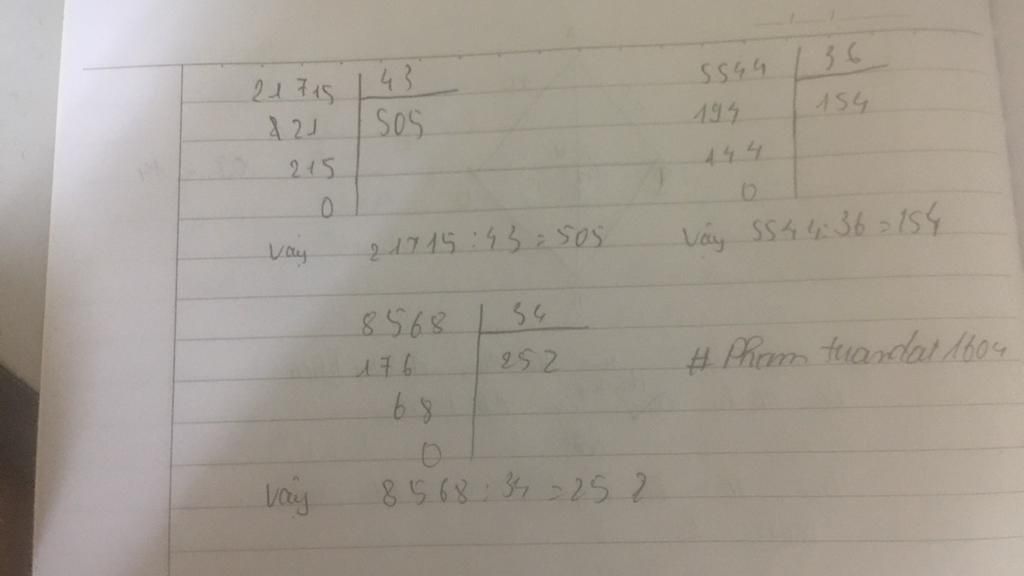 21715 | 43
821 | 505
215
0
Vậy 21715 : 43 = 505
5544 | 36
194 | 154
144
0
Vậy 5544 : 36 = 154
8568 | 34
176 | 252
68
0
Vậy 8568 : 34 = 252
# Phamtuandat1604